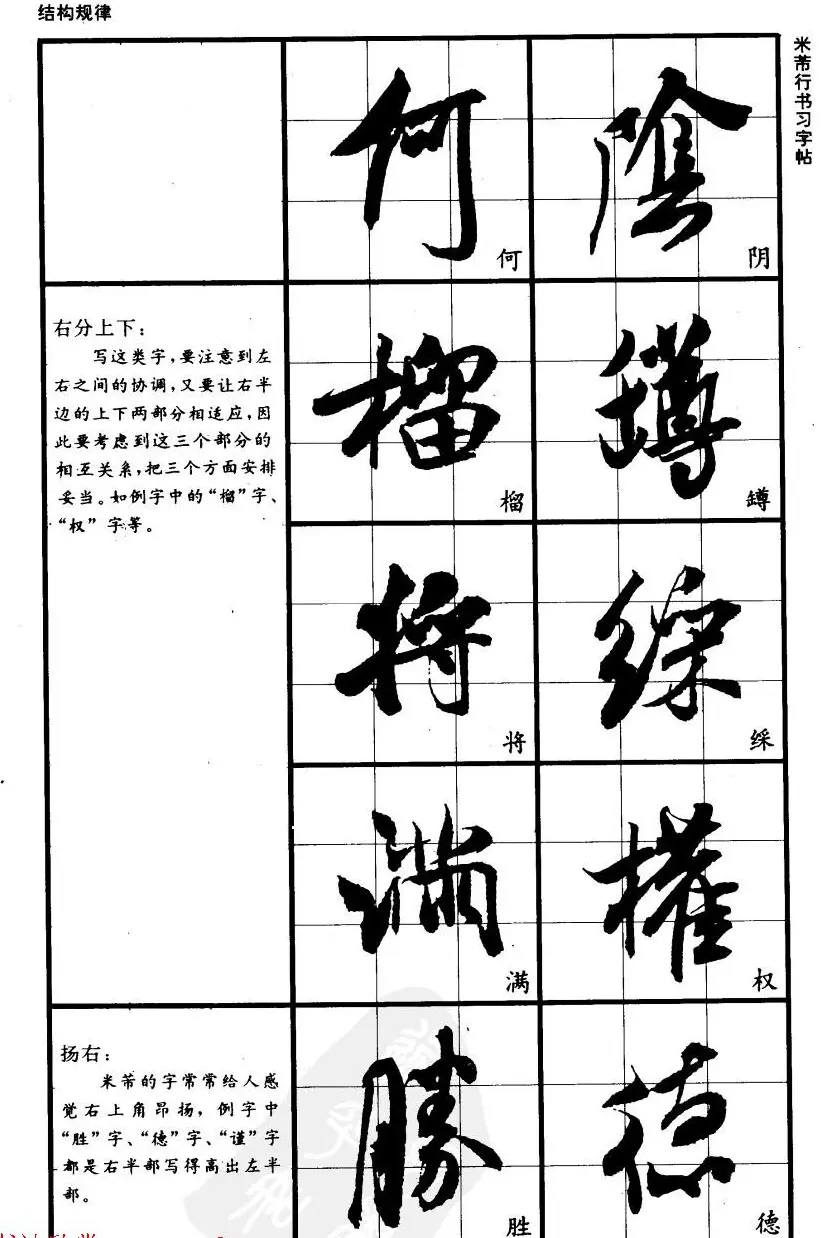 结构规律
米芾行书习字帖
何
阴
右分上下：
写这类字，要注意到左
右之间的协调，又要让右半
边的上下两部分相适应，因
此要考虑到这三个部分的
相互关系，把三个方面安排
妥当。如例字中的“榴”字、
“权”字等。
榴
罇
将
綵
满
权
扬右：
米芾的字常常给人感
觉右上角昂扬，例字中
“胜”字、“德”字、“谨”字
都是右半部写得高出左半
部。
胜
德